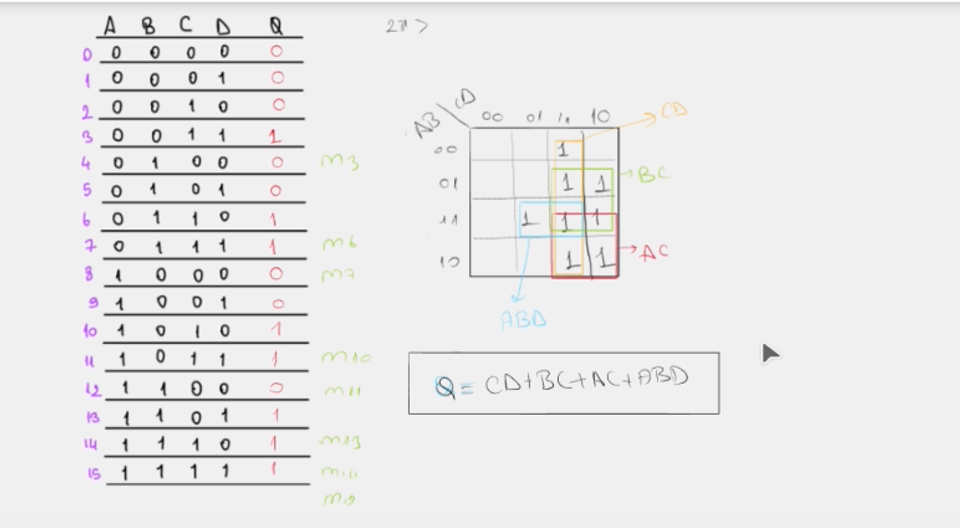 A B C D Q
0 0 0 0 0 0
1 0 0 0 1 0
2 0 0 1 0 0
3 0 0 1 1 1
4 0 1 0 0 0 m3
5 0 1 0 1 0
6 0 1 1 0 1
7 0 1 1 1 1 m6
8 1 0 0 0 0 m7
9 1 0 0 1 0
10 1 0 1 0 1
11 1 0 1 1 1 m10
12 1 1 0 0 0 m11
13 1 1 0 1 1
14 1 1 1 0 1 m13
15 1 1 1 1 1
AB \ CD
00 01 11 10
00 1
01 1 1
11 1 1 1
10 1 1
CD
BC
AC
ABD
Q = CD+BC+AC+ABD